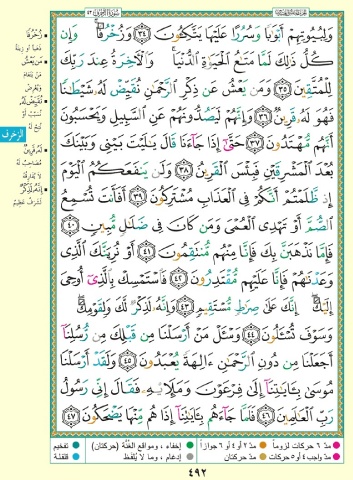 وَلِبُيُوتِهِمْ أَبْوَٰبًا وَسُرُرًا عَلَيْهَا يَتَّكِـُٔونَ ﴿٣٤﴾ وَزُخْرُفًا ۚ وَإِن
كُلُّ ذَٰلِكَ لَمَّا مَتَـٰعُ ٱلْحَيَوٰةِ ٱلدُّنْيَا ۚ وَٱلْـَٔاخِرَةُ عِندَ رَبِّكَ
لِلْمُتَّقِينَ ﴿٣٥﴾ وَمَن يَعْشُ عَن ذِكْرِ ٱلرَّحْمَـٰنِ نُقَيِّضْ لَهُۥ شَيْطَـٰنًا
فَهُوَ لَهُۥ قَرِينٌ ﴿٣٦﴾ وَإِنَّهُمْ لَيَصُدُّونَهُمْ عَنِ ٱلسَّبِيلِ وَيَحْسَبُونَ
أَنَّهُم مُّهْتَدُونَ ﴿٣٧﴾ حَتَّىٰٓ إِذَا جَآءَنَا قَالَ يَـٰلَيْتَ بَيْنِى وَبَيْنَكَ
بُعْدَ ٱلْمَشْرِقَيْنِ فَبِئْسَ ٱلْقَرِينُ ﴿٣٨﴾ وَلَن يَنفَعَكُمُ ٱلْيَوْمَ
إِذ ظَّلَمْتُمْ أَنَّكُمْ فِى ٱلْعَذَابِ مُشْتَرِكُونَ ﴿٣٩﴾ أَفَأَنتَ تُسْمِعُ
ٱلصُّمَّ أَوْ تَهْدِى ٱلْعُمْىَ وَمَن كَانَ فِى ضَلَـٰلٍ مُّبِينٍ ﴿٤٠﴾
فَإِمَّا نَذْهَبَنَّ بِكَ فَإِنَّا مِنْهُم مُّنتَقِمُونَ ﴿٤١﴾ أَوْ نُرِيَنَّكَ ٱلَّذِى
وَعَدْنَـٰهُمْ فَإِنَّا عَلَيْهِم مُّقْتَدِرُونَ ﴿٤٢﴾ فَٱسْتَمْسِكْ بِٱلَّذِىٓ أُوحِىَ
إِلَيْكَ ۖ إِنَّكَ عَلَىٰ صِرَٰطٍ مُّسْتَقِيمٍ ﴿٤٣﴾ وَإِنَّهُۥ لَذِكْرٌ لَّكَ وَلِقَوْمِكَ ۖ
وَسَوْفَ تُسْـَٔلُونَ ﴿٤٤﴾ وَسْـَٔلْ مَنْ أَرْسَلْنَا مِن قَبْلِكَ مِن رُّسُلِنَآ
أَجَعَلْنَا مِن دُونِ ٱلرَّحْمَـٰنِ ءَالِهَةً يُعْبَدُونَ ﴿٤٥﴾ وَلَقَدْ أَرْسَلْنَا
مُوسَىٰ بِـَٔايَـٰتِنَآ إِلَىٰ فِرْعَوْنَ وَمَلَإِي۟هِۦ فَقَالَ إِنِّى رَسُولُ
رَبِّ ٱلْعَـٰلَمِينَ ﴿٤٦﴾ فَلَمَّا جَآءَهُم بِـَٔايَـٰتِنَآ إِذَا هُم مِّنْهَا يَضْحَكُونَ ﴿٤٧﴾
الزخرف
مدّ ٦ حركات لزوماً
مدّ ٢ أو ٤ أو ٦ جوازاً
إخفاء، ومواقع الغُنَّة (حركتان)
تفخيم
مدّ واجب ٤ أو ٥ حركات
مدّ حركتان
إدغام، وما لا يُلفظ
قلقلة
٤٩٢